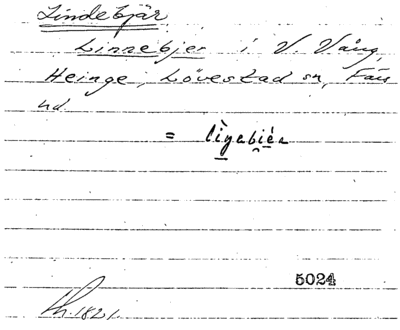 Lindebjär
Linnebjer i V. Vång,
Heinge, Lövestad sn, Färs
hd
= 
5024
1821